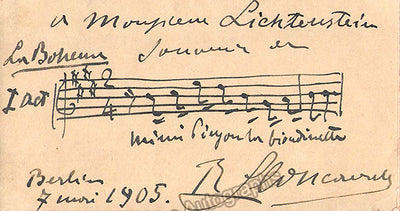 a Monsieur Lichtenstein
Souvenir de
La Boheme
I act
2
4
mimi Pinson la biondinetta
Berlin
7 mai 1905.
R Leoncavallo